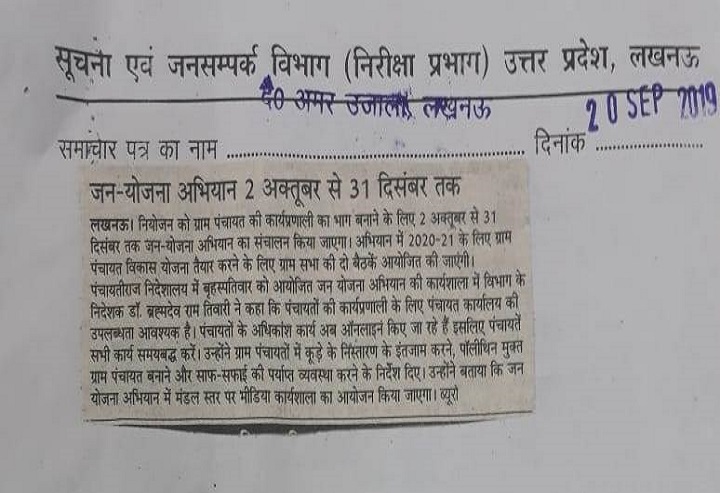 सूचना एवं जनसम्पर्क विभाग (निरीक्षा प्रभाग) उत्तर प्रदेश, लखनऊ
दै० अमर उजाला लखनऊ
20 SEP 2019
समाचार पत्र का नाम .................................... दिनांक ....................
जन-योजना अभियान 2 अक्तूबर से 31 दिसंबर तक
लखनऊ। नियोजन को ग्राम पंचायत की कार्यप्रणाली का भाग बनाने के लिए 2 अक्तूबर से 31
दिसंबर तक जन-योजना अभियान का संचालन किया जाएगा। अभियान में 2020-21 के लिए ग्राम
पंचायत विकास योजना तैयार करने के लिए ग्राम सभा की दो बैठकें आयोजित की जाएंगी।
पंचायतीराज निदेशालय में बृहस्पतिवार को आयोजित जन योजना अभियान की कार्यशाला में विभाग के
निदेशक डॉ. ब्रह्मदेव राम तिवारी ने कहा कि पंचायतों की कार्यप्रणाली के लिए पंचायत कार्यालय की
उपलब्धता आवश्यक है। पंचायतों के अधिकांश कार्य अब ऑनलाइन किए जा रहे हैं इसलिए पंचायतें
सभी कार्य समयबद्ध करें। उन्होंने ग्राम पंचायतों में कूड़े के निस्तारण के इंतजाम करने, पॉलीथिन मुक्त
ग्राम पंचायत बनाने और साफ-सफाई की पर्याप्त व्यवस्था करने के निर्देश दिए। उन्होंने बताया कि जन
योजना अभियान में मंडल स्तर पर मीडिया कार्यशाला का आयोजन किया जाएगा। ब्यूरो